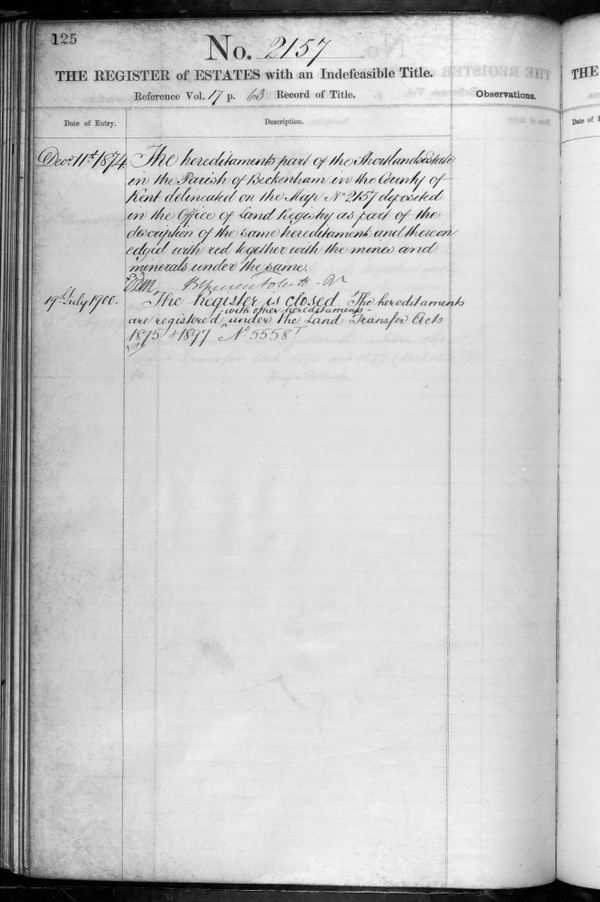 125
No. 2157
THE REGISTER of ESTATES with an Indefeasible Title.
Reference Vol. 17 p. 63 Record of Title.
Observations.
Date of Entry.
Description.
Decr 11th 1874
The hereditaments part of the Shortlands Estate
in the Parish of Beckenham in the County of
Kent delineated on the Map No 2157 deposited
in the Office of Land Registry as part of the
description of the same hereditaments and thereon
edged with red together with the mines and
minerals under the same.
19th July 1900.
The Register is closed. The hereditaments
with other hereditaments
are registered under the Land Transfer Acts
1875 & 1897 No 5558
THE
Date of